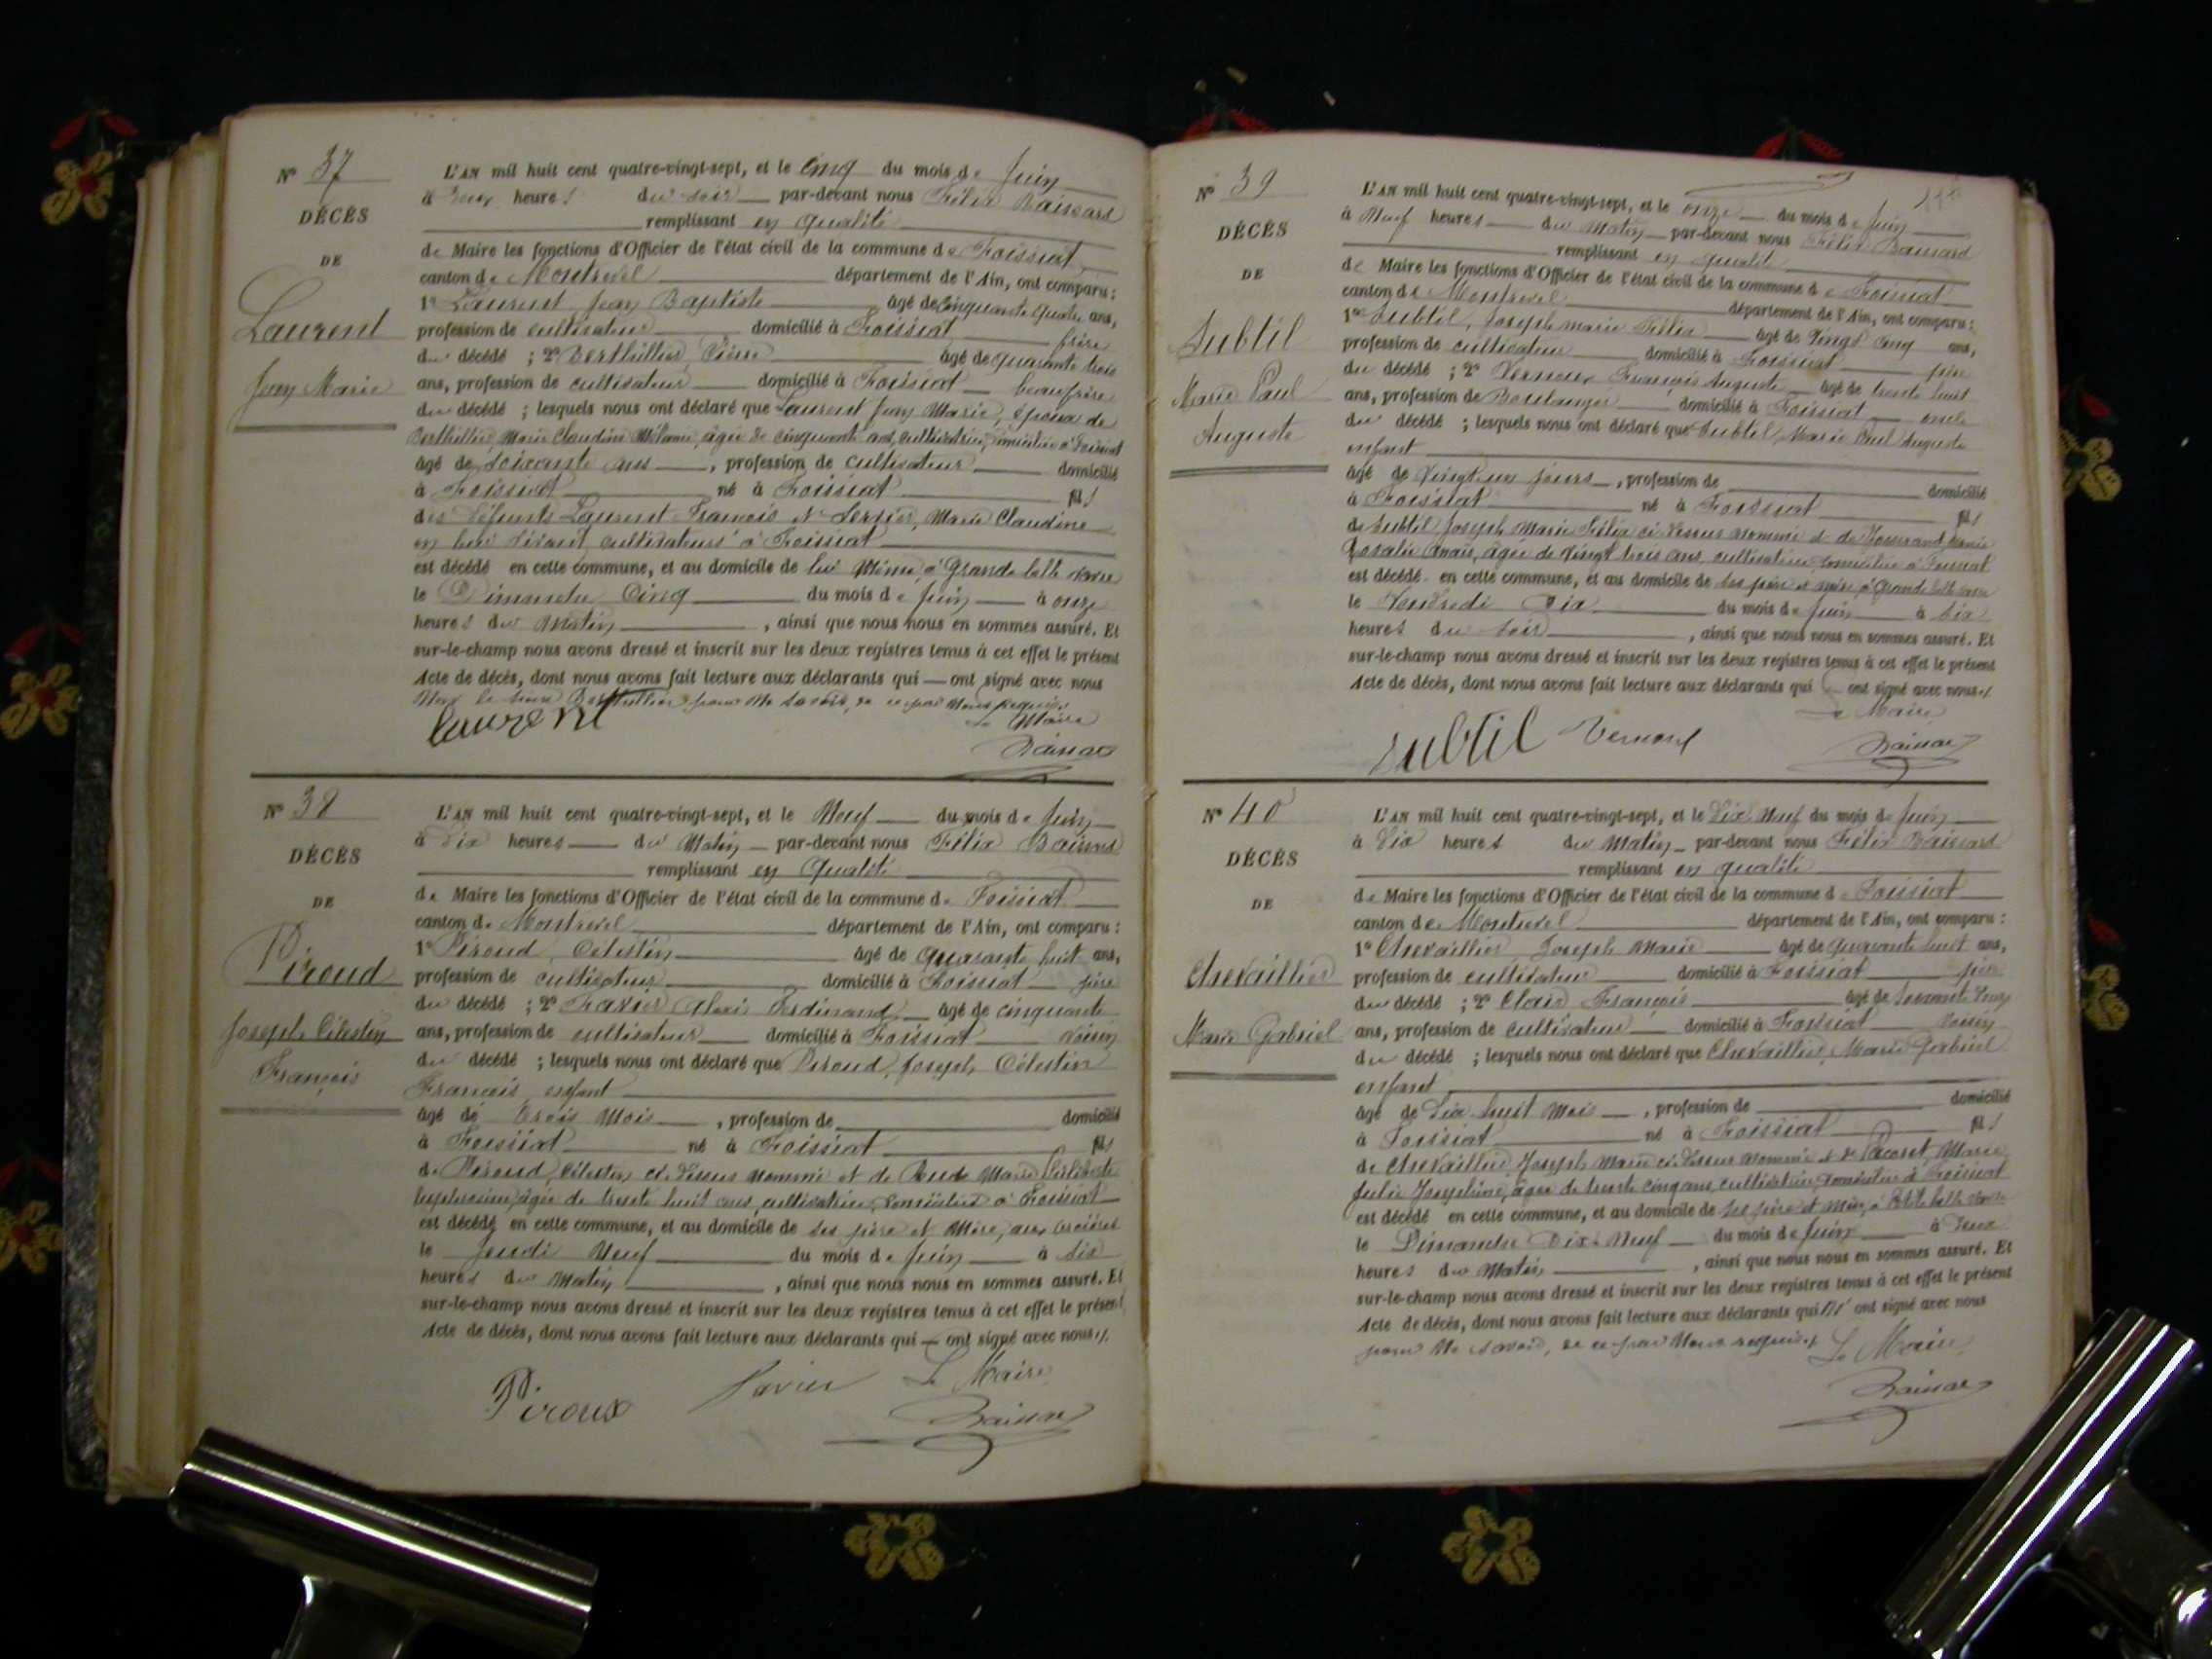 N° 37
DÉCÈS
DE
Laurent
Jean Marie
L'AN mil huit cent quatre-vingt-sept, et le Cinq du mois de Juin
à deux heures du soir par-devant nous Félix Baissard
remplissant en qualité
de Maire les fonctions d'Officier de l'état civil de la commune de Foissiat
canton de Montrevel département de l'Ain, ont comparu :
1° Laurent, Jean Baptiste âgé de cinquante quatre ans,
profession de cultivateur domicilié à Foissiat frère
du décédé ; 2° Berthillier, Pierre âgé de quarante trois
ans, profession de cultivateur domicilié à Foissiat beau frère
du décédé ; lesquels nous ont déclaré que Laurent Jean Marie, époux de
Berthillier, Marie Claudine Mélanie, âgée de cinquante ans, cultivatrice, domiciliée à Foissiat
âgé de soixante ans, profession de cultivateur domicilié
à Foissiat né à Foissiat fils
des défunts Laurent François et Marie Claudine
en leur vivant cultivateurs à Foissiat
est décédé en cette commune, et au domicile de lui même, à Grande
le Dimanche Cinq du mois de Juin à onze
heures du Matin, ainsi que nous nous en sommes assuré. Et
sur-le-champ nous avons dressé et inscrit sur les deux registres tenus à cet effet le présent
Acte de décès, dont nous avons fait lecture aux déclarants qui — ont signé avec nous
Non le sieur Berthillier pour ne savoir, de ce par nous requis.
Le Maire
Laurent
N° 38
DÉCÈS
DE
Piroud
Joseph Célestin
François
L'AN mil huit cent quatre-vingt-sept, et le Neuf du mois de Juin
à dix heures du Matin par-devant nous Félix Baissard
remplissant en qualité
de Maire les fonctions d'Officier de l'état civil de la commune de Foissiat
canton de Montrevel département de l'Ain, ont comparu :
1° Piroud, Célestin âgé de quarante huit ans,
profession de cultivateur domicilié à Foissiat père
du décédé ; 2° Ferdinand âgé de cinquante
ans, profession de cultivateur domicilié à Foissiat voisin
du décédé ; lesquels nous ont déclaré que Piroud, Joseph Célestin
François, enfant
âgé de trois Mois, profession de domicilié
à Foissiat né à Foissiat fils
de Piroud, Célestin ci-dessus nommé et de Marie
âgée de trente huit ans, cultivatrice, domiciliée à Foissiat
est décédé en cette commune, et au domicile de ses père et mère, aux
le Jeudi Neuf du mois de Juin à six
heures du Matin, ainsi que nous nous en sommes assuré. Et
sur-le-champ nous avons dressé et inscrit sur les deux registres tenus à cet effet le présent
Acte de décès, dont nous avons fait lecture aux déclarants qui — ont signé avec nous
Le Maire
Piroud
N° 39
DÉCÈS
DE
Subtil
Marie Paul
Auguste
L'AN mil huit cent quatre-vingt-sept, et le onze du mois de Juin
à Neuf heures du Matin par-devant nous Félix Baissard
remplissant en qualité
de Maire les fonctions d'Officier de l'état civil de la commune de Foissiat
canton de Montrevel département de l'Ain, ont comparu :
1° Subtil, Joseph Marie Félix âgé de vingt cinq ans,
profession de cultivateur domicilié à Foissiat père
du décédé ; 2° François Auguste âgé de trente huit
ans, profession de Boulanger domicilié à Foissiat oncle
du décédé ; lesquels nous ont déclaré que Subtil, Marie Paul Auguste
enfant
âgé de jours, profession de domicilié
à Foissiat né à Foissiat fils
de Subtil Joseph Marie Félix ci-dessus nommé et de
Rosalie Anaïs, âgée de vingt trois ans, cultivatrice, domiciliée à Foissiat
est décédé en cette commune, et au domicile de ses père et mère, à Grande
le Vendredi Dix du mois de Juin à six
heures du soir, ainsi que nous nous en sommes assuré. Et
sur-le-champ nous avons dressé et inscrit sur les deux registres tenus à cet effet le présent
Acte de décès, dont nous avons fait lecture aux déclarants qui — ont signé avec nous
Le Maire
subtil
N° 40
DÉCÈS
DE
Chevaillier
Marie Gabriel
L'AN mil huit cent quatre-vingt-sept, et le Dix Neuf du mois de Juin
à Dix heures du Matin par-devant nous Félix Baissard
remplissant en qualité
de Maire les fonctions d'Officier de l'état civil de la commune de Foissiat
canton de Montrevel département de l'Ain, ont comparu :
1° Chevaillier Joseph Marie âgé de quarante huit ans,
profession de cultivateur domicilié à Foissiat père
du décédé ; 2° François âgé de
ans, profession de cultivateur domicilié à Foissiat voisin
du décédé ; lesquels nous ont déclaré que Chevaillier, Marie Gabriel
enfant
âgé de dix huit mois, profession de domicilié
à Foissiat né à Foissiat fils
de Chevaillier, Joseph Marie ci-dessus nommé et de Pacoret, Marie
Julie Joséphine, âgée de trente cinq ans, cultivatrice, domiciliée à Foissiat
est décédé en cette commune, et au domicile de ses père et mère, à Petite
le Dimanche Dix-Neuf du mois de Juin à deux
heures du Matin, ainsi que nous nous en sommes assuré. Et
sur-le-champ nous avons dressé et inscrit sur les deux registres tenus à cet effet le présent
Acte de décès, dont nous avons fait lecture aux déclarants qui N' ont signé avec nous
pour ne savoir, de ce par nous requis.
Le Maire